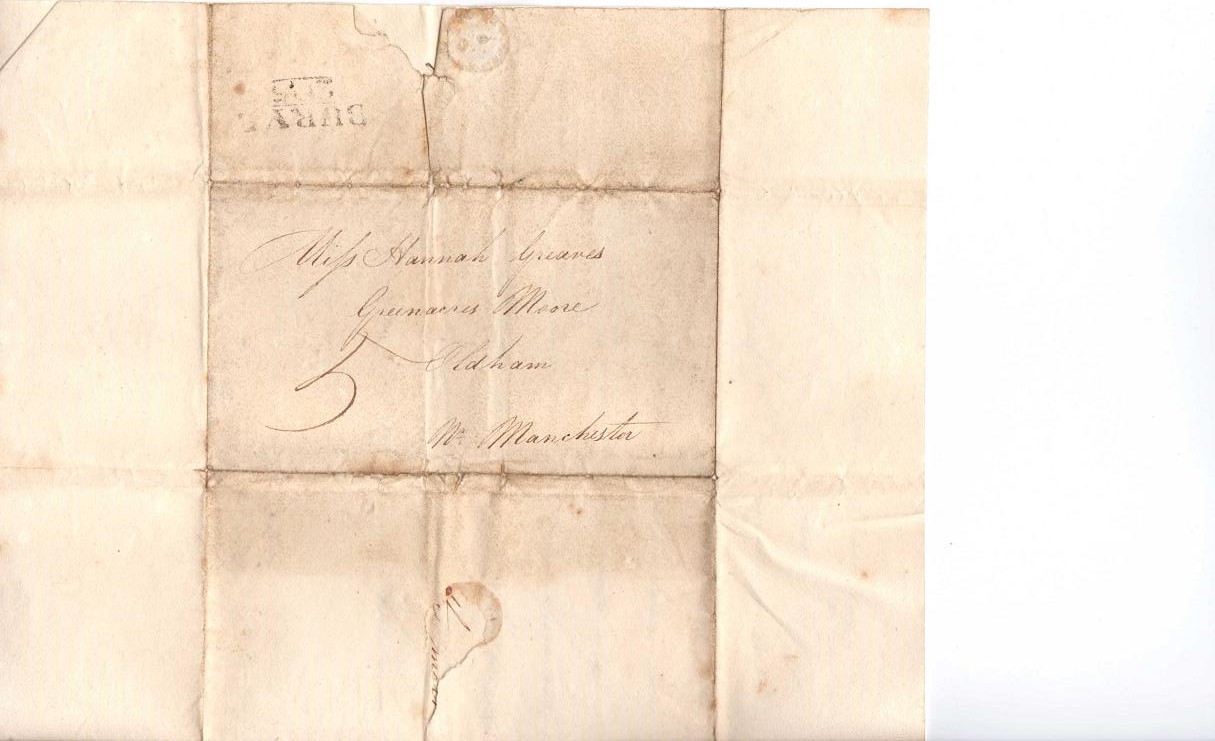 Miss Hannah Greaves
Greenacres Moore
5
Oldham
Nr. Manchester